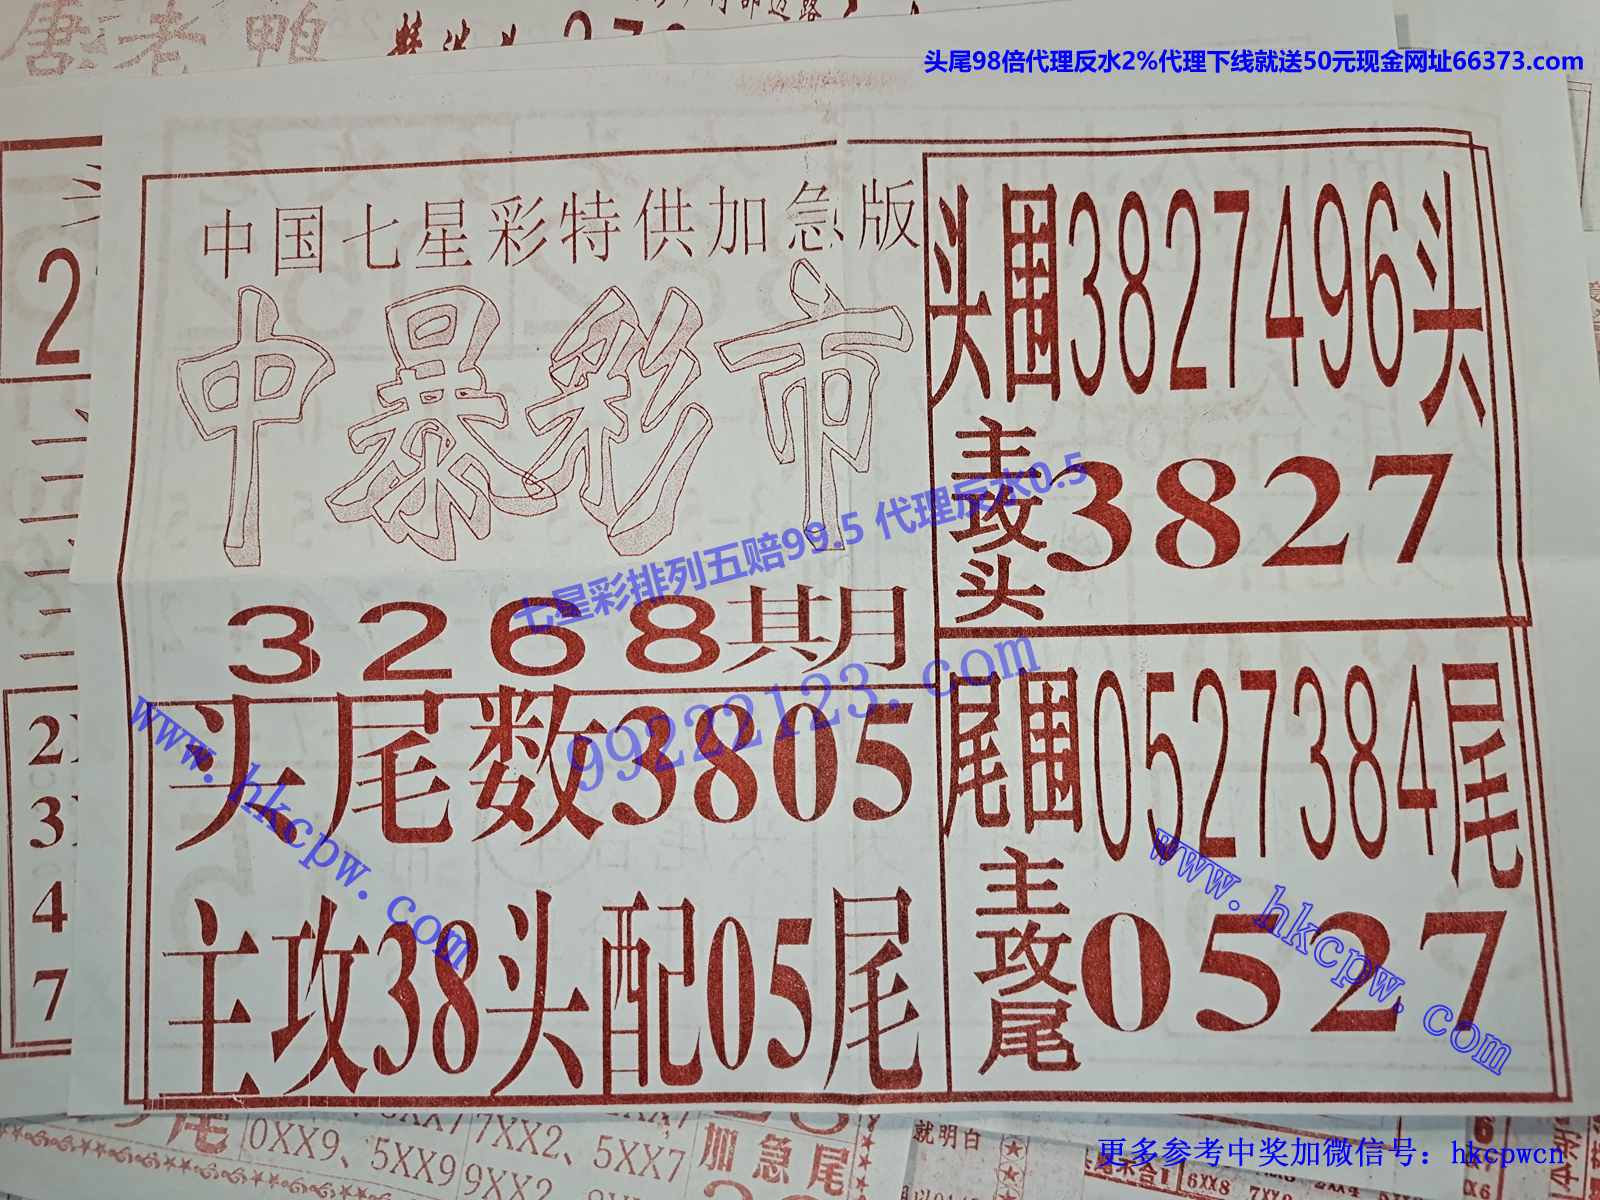 唐老鸭
头尾98倍代理反水2%代理下线就送50元现金网址66373.com
中国七星彩特供加急版
中暴彩市
3268期
头尾数3805
主攻38头配05尾
头围3827496头
主攻头3827
尾围0527384尾
主攻尾0527
七星彩排列五赔99.5 代理反水0.5
99222123.com
www.hkcpw.com
www.hkcpw.com
2
2
3
4
7
0XX9、5XX9
7XX2、5XX7
9XX2
加急尾
就明白
6XX8
更多参考中奖加微信号：hkcpwcn